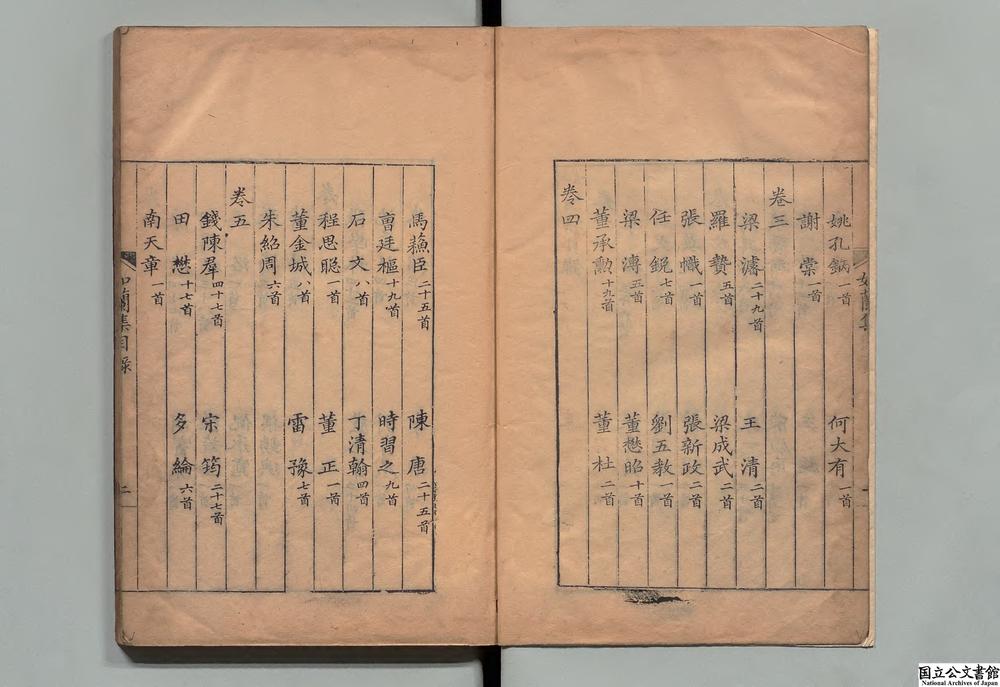 姚孔鈵 一首 何大有 一首
謝棠 一首
卷三
梁濬 二十九首 王清 二首
羅贊 五首 梁成武 二首
張幟 一首 張新政 二首
任銳 七首 劉五教 一首
梁漙 五首 董懋昭 十首
董承勳 十九首 董杜 二首
卷四
馬蘓臣 二十五首 陳唐 二十五首
曺廷樞 十九首 時習之 九首
石文 八首 丁清翰 四首
程思聪 一首 董正 一首
董金城 八首 雷豫 七首
朱紹周 六首
卷五
錢陳羣 四十七首 宋筠 二十七首
田懋 十七首 多綸 六首
南天章 一首
如蘭集目錄 二
国立公文書館
National Archives of Japan